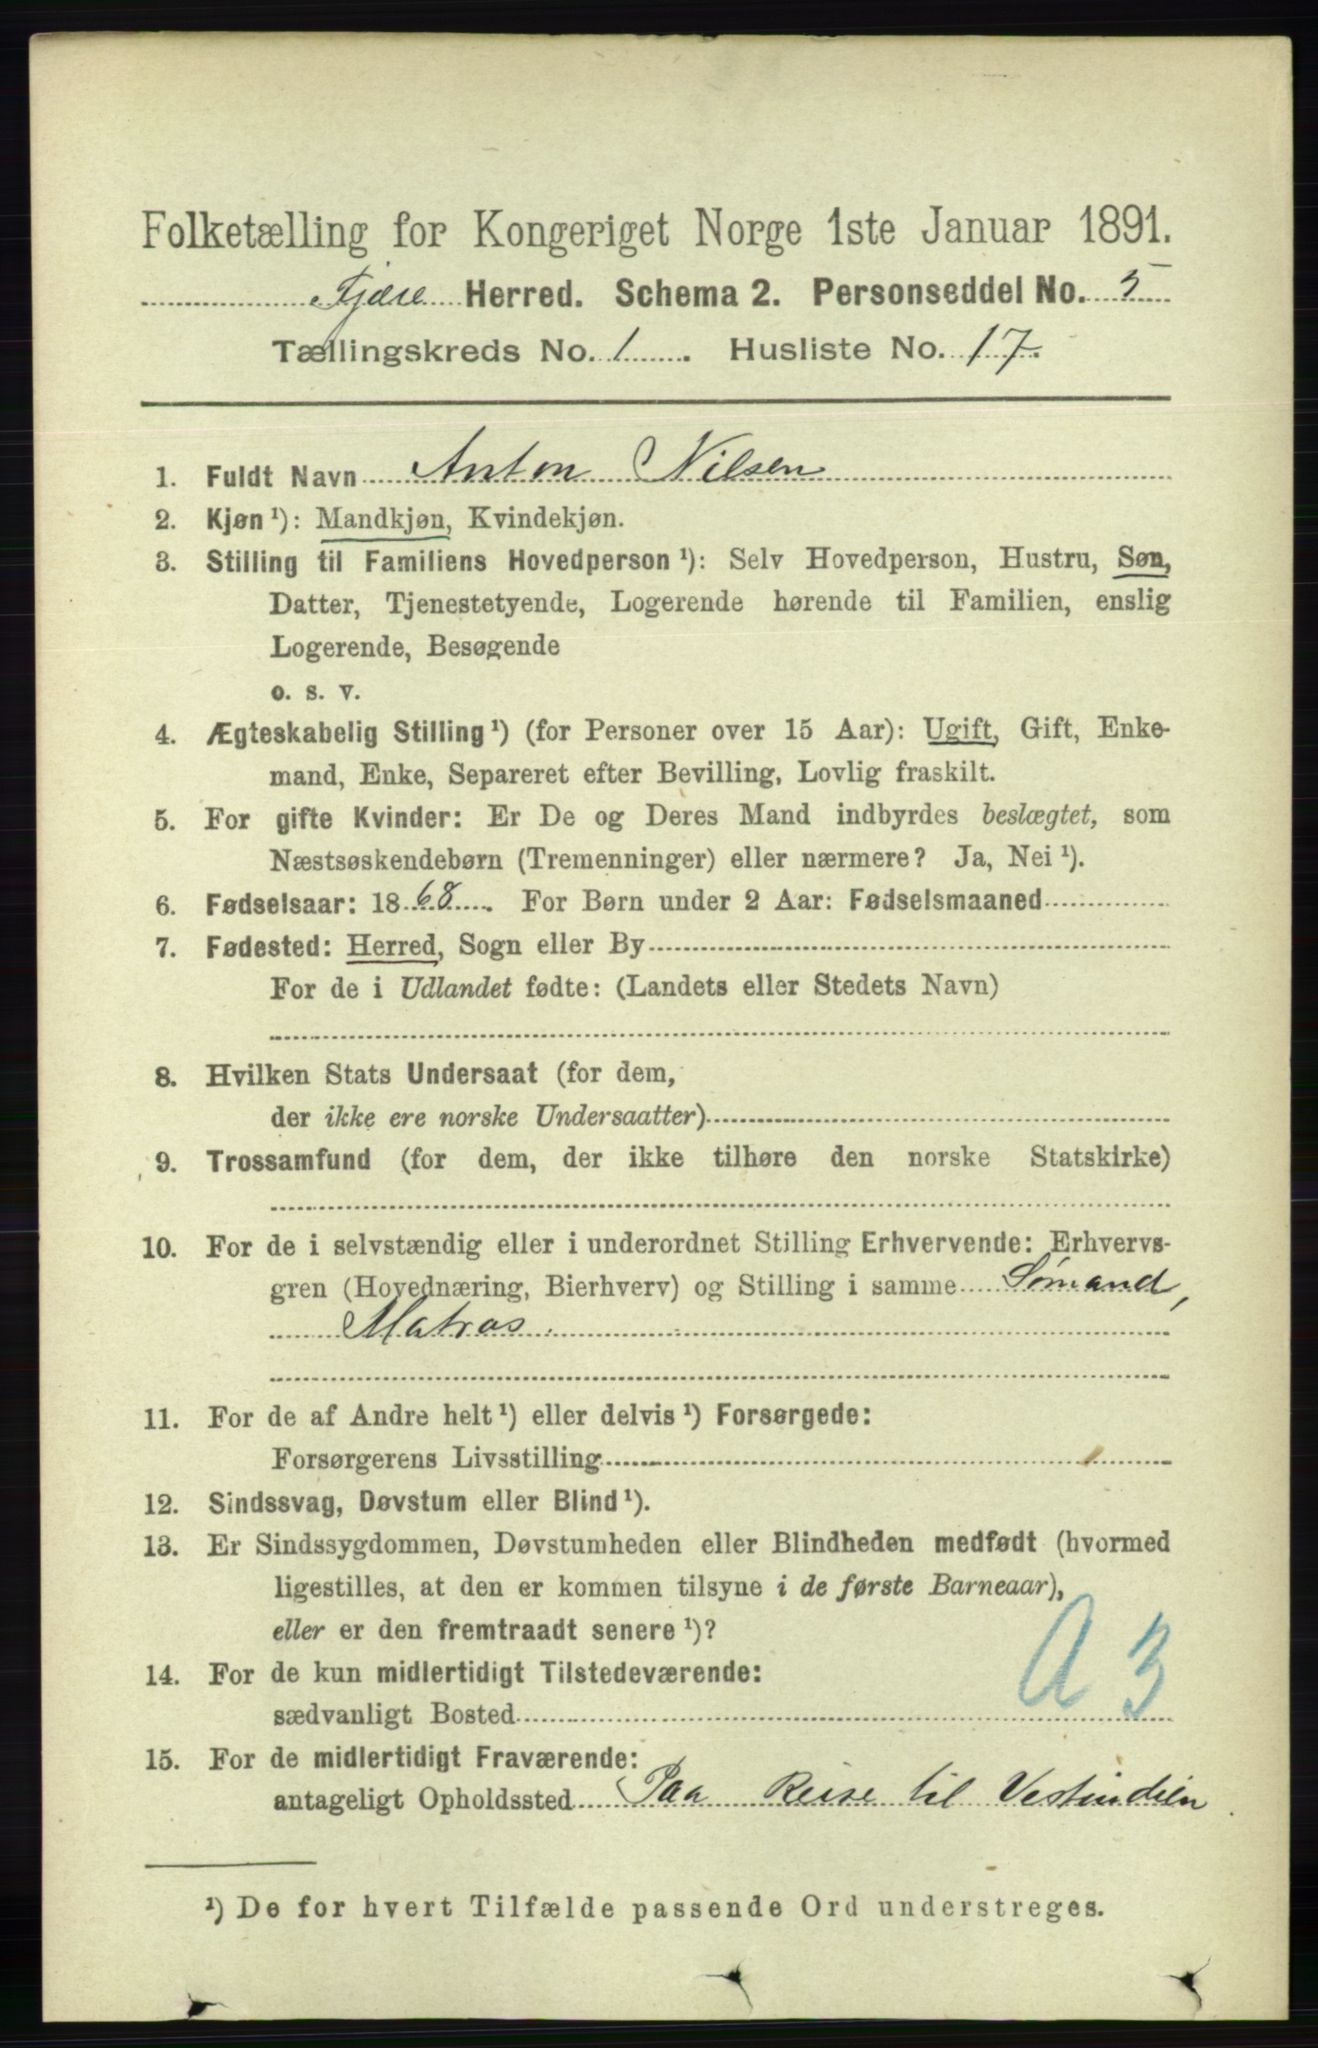 Folketælling for Kongeriget Norge 1ste Januar 1891.
Fjære Herred. Schema 2. Personseddel No. 5
Tællingskreds No. 1. Husliste No. 17.
1. Fuldt Navn Anton Nilsen
2. Kjøn ¹): Mandkjøn, Kvindekjøn.
3. Stilling til Familiens Hovedperson ¹): Selv Hovedperson, Hustru, Søn,
Datter, Tjenestetyende, Logerende hørende til Familien, enslig
Logerende, Besøgende
o. s. v.
4. Ægteskabelig Stilling ¹) (for Personer over 15 Aar): Ugift, Gift, Enke-
mand, Enke, Separeret efter Bevilling, Lovlig fraskilt.
5. For gifte Kvinder: Er De og Deres Mand indbyrdes beslægtet, som
Næstsøskendebørn (Tremenninger) eller nærmere? Ja, Nei ¹).
6. Fødselsaar: 1868. For Børn under 2 Aar: Fødselsmaaned
7. Fødested: Herred, Sogn eller By
For de i Udlandet fødte: (Landets eller Stedets Navn)
8. Hvilken Stats Undersaat (for dem,
der ikke ere norske Undersaatter)
9. Trossamfund (for dem, der ikke tilhøre den norske Statskirke)
10. For de i selvstændig eller i underordnet Stilling Erhvervende: Erhvervs-
gren (Hovednæring, Bierhverv) og Stilling i samme Sømand,
Matros.
11. For de af Andre helt ¹) eller delvis ¹) Forsørgede:
Forsørgerens Livsstilling
12. Sindssvag, Døvstum eller Blind ¹).
13. Er Sindssygdommen, Døvstumheden eller Blindheden medfødt (hvormed
ligestilles, at den er kommen tilsyne i de første Barneaar),
eller er den fremtraadt senere ¹)?
A 3
14. For de kun midlertidigt Tilstedeværende:
sædvanligt Bosted
15. For de midlertidigt Fraværende:
antageligt Opholdssted Paa Reise til Vestindien
¹) De for hvert Tilfælde passende Ord understreges.